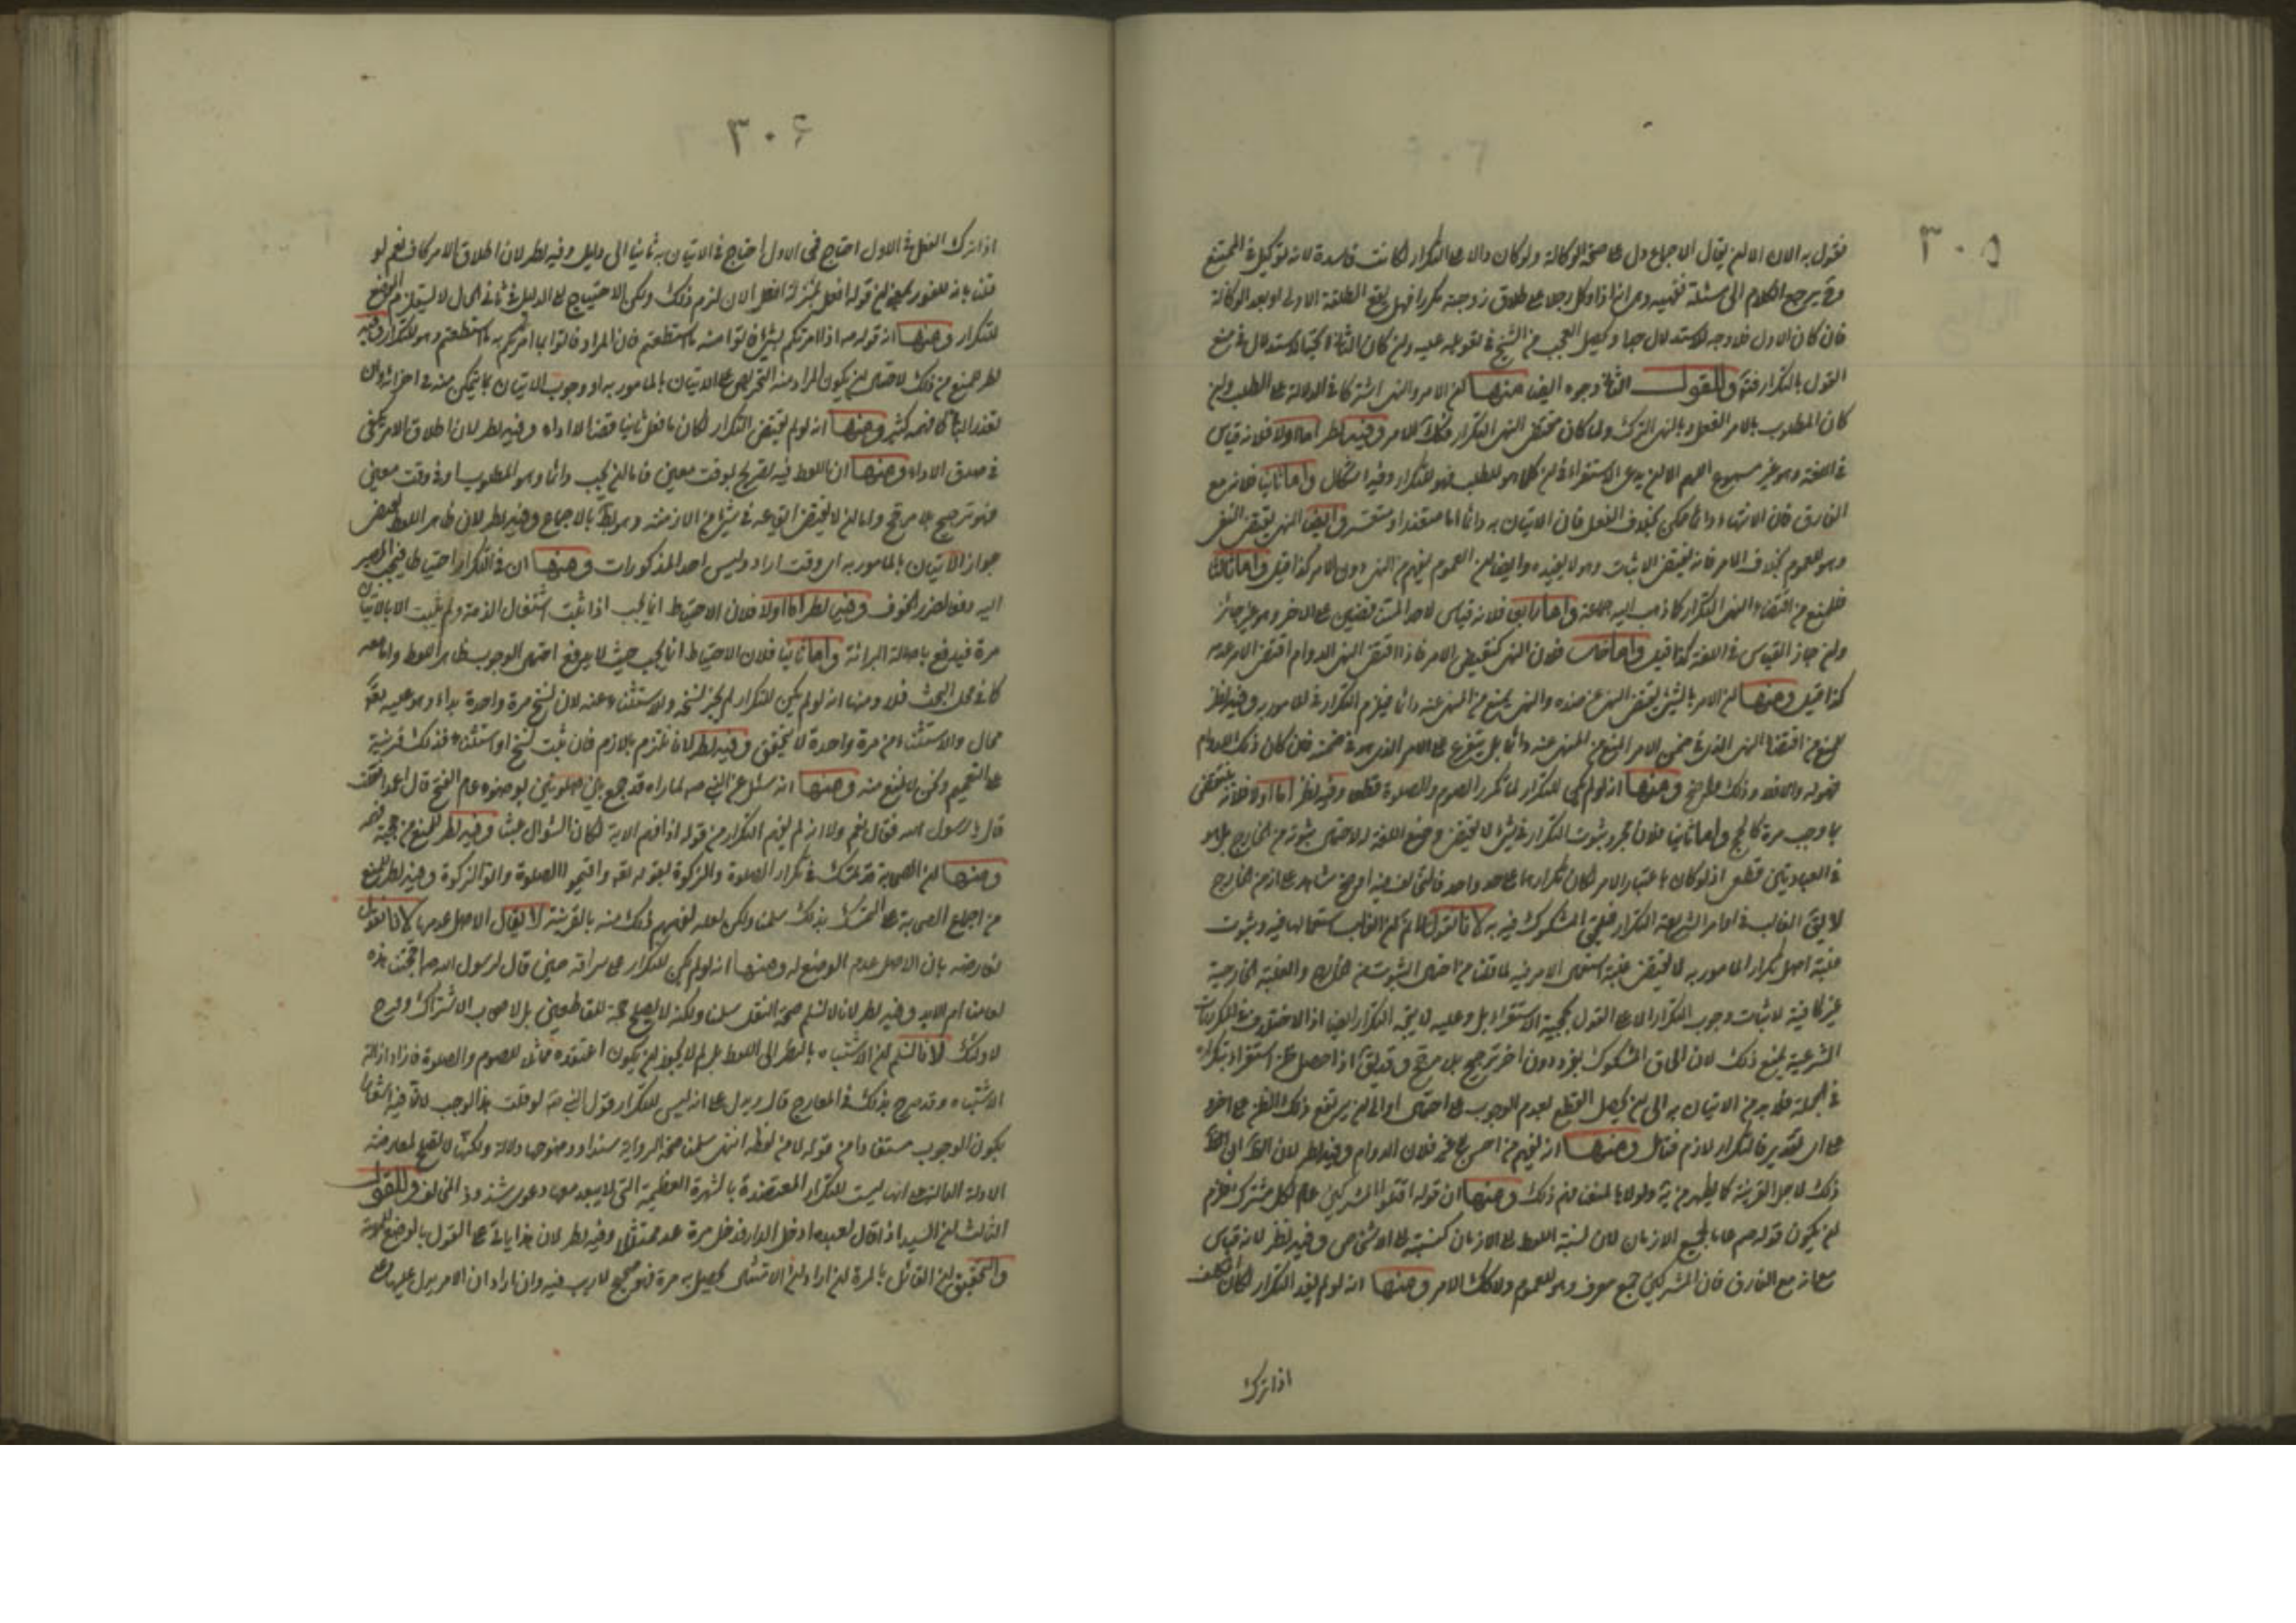 ٣٠٥
فنقول به الان الا ان يقال الاجماع دل على صحة الوكالة ولو كان دالا على التكرار لكانت فاسدة لانه توكيل في الممتنع
وح يرجع الكلام الى مسئلة وهي انه اذا وكل رجلا على طلاق زوجته مكررا فهل يقع الطلقة الاولى او بعد الوكالة
فان كان الاول فلا وجه للاستدلال جدا ويحصل العجب من الشيخ في تعويله عليه وان كان الثاني الاستدلال في منع
القول بالتكرار فتدبر وللقول الثاني وجوه ايضا منها ان الامر والنهي اشتركا في الدلالة على الطلب وان
كان المطلوب بالامر الفعل وبالنهي الترك ولما كان مقتضى النهي التكرار فكذلك الامر وفيه نظر اما اولا فلانه قياس
في اللغة وهو غير مسموع اللهم الا ان يدعى الاستقراء في ان كلما هو للطلب فهو للتكرار وفيه اشكال واما ثانيا فلانه مع
الفارق فان الانتهاء دائما ممكن بخلاف الفعل فان الاتيان به دائما اما متعذر او متعسر وايضا النهي يقتضي النفي
وهو للعموم بخلاف الامر فانه يقتضي الاثبات وهو لا يفيده وايضا ان العموم يفهم من النهي دون الامر كذا قيل واما ثالثا
فللمنع من اقتضاء النهي التكرار كما ذهب اليه جماعة واما رابعا فلانه قياس لاحد المتناقضين على الاخر وهو غير جائز
وان جاز القياس في اللغة كذا قيل واما خامسا فلان النهي كنقيض الامر فاذا اقتضى النهي الدوام اقتضى الامر عدمه
كذا قيل ومنها ان الامر بالشيء يقتضي النهي عن ضده والنهي يمنع من المنهي عنه دائما فيلزم التكرار في المامور به وفيه نظر
للمنع من اقتضاء النهي الذي في ضمن الامر المنع من المنهي عنه دائما بل يتفرع على الامر الذي هو في ضمنه فان كان ذلك للدوام
فهو له والا فلا وذلك واضح ومنها انه لو لم يكن للتكرار لما تكرر الصوم والصلوة قطعا وفيه نظر اما اولا فلانه ينتقض
بما وجب مرة كالحج واما ثانيا فلان مجرد ثبوت التكرار في شيء لا يقتضي وضع اللغة له لاحتمال ثبوته من الخارج بل هو
في العبادتين قطعا اذ لو كان باعتبار الامر لكان تكرارهما على حد واحد فاختلافهما فيه اوضح شاهد على انه من خارج
لا يق الغالب في اوامر الشريعة التكرار فيلحق المشكوك فيه به لانا نقول لا نم ان الغالب استعمالها فيه وثبوت
غلبة اصل تكرار المامور به لا يقتضي غلبة استعمال الامر فيه لما قلنا من احتمال الثبوت من الخارج والغلبة الخارجية
غير كافية لاثبات وجوب التكرار الا على القول بحجية الاستقراء بل وعليه لا يتجه التكرار ايضا اذ الاختلاف في التكررات
الشرعية يمنع ذلك لان الحاق المشكوك بفرد دون اخر ترجيح بلا مرجح وقد يق اذا حصل ظن استقراء بتكراره
في الجملة فلا بد من الاتيان به الى ان يحصل القطع بعدم الوجوب على احتمال او الى ان يرتفع ذلك الظن على اخر و
على اي تقدير فالتكرار لازم فتامل ومنها انه يفهم من احسن عشرة فلان الدوام وفيه نظر لان الظ ان
ذلك لاجل القرينة كما يظهر منه ولولاها لمنعنا فهم ذلك ومنها ان قوله اقتلوا المشركين عام لكل مشرك فلزم
ان يكون قوله صم عاما لجميع الازمان لان نسبة اللفظ الى الازمان كنسبته الى الاشخاص وفيه نظر لانه قياس
مع انه مع الفارق فان المشركين جمع معرف وهو للعموم ولا كذلك الامر ومنها انه لو لم يفد التكرار لكان المكلف
اذا ترك
٣٠۶
اذا ترك الفعل في الاول احتاج في الاتيان به ثانيا الى دليل وفيه نظر لان اطلاق الامر كاف نعم لو
قلنا بانه للفور بمعنى ان قوله افعل بمنزلة افعل الان لزم ذلك ولكن الاحتياج الى الدليل في ثاني الحال لا يستلزم الوضع
للتكرار ومنها ان قوله ص اذا امرتكم بشيء فاتوا منه ما استطعتم فان المراد فاتوا بما امرتكم به ما استطعتم وهو للتكرار وفيه
نظر للمنع من ذلك لاحتمال ان يكون المراد منه التحريص على الاتيان بالمامور به او وجوب الاتيان بما يتمكن منه في اجزائه وان
تعذر الباقي كما فهمه كثير ومنها انه لو لم يقتض التكرار لكان ما فعل ثانيا قضاء لا اداء وفيه نظر لان اطلاق الامر يكفي
في صدق الاداء ومنها ان اللفظ فيه تصريح بوقت معين فاما ان يجب دائما وهو المطلوب او في وقت معين
فهو ترجيح بلا مرجح واما ان لا يقتضي ايقاعه في شيء من الازمنة وهو بط بالاجماع وفيه نظر لان ظاهر اللفظ يقتضي
جواز الاتيان بالمامور به اي وقت اراد وليس احد المذكورات ومنها ان في التكرار احتياطا فيجب المصير
اليه دفعا لضرر الخوف وفيه نظر اما اولا فلان الاحتياط انما يجب اذا ثبت اشتغال الذمة ولم يثبت الا بالاتيان
مرة فيدفع باصالة البرائة واما ثانيا فلان الاحتياط انما يجب حيث لا يرفع احتمال الوجوب بظاهر اللفظ واما معه
كما في محل البحث فلا ومنها انه لو لم يكن للتكرار لم يجز نسخه ولا استثناء عنه لان نسخ مرة واحدة بداء وهو عليه تعالى
محال والاستثناء من مرة واحدة لا يتحقق وفيه نظر لانا نلتزم باللازم فان ثبت نسخ او استثناء فذلك قرينة
على التعميم ولكن لا يمنع منه ومنها انه سئل عن النبي صم لما راه قد جمع بين صلوتين بوضوء عام الفتح قال اعمدا فعلت هذا
قال يا رسول الله فقال نعم ولا انه لم يفهم التكرار من قوله اذا قمتم الاية لكان السؤال عبثا وفيه نظر للمنع من حجية فهمه
ومنها ان الصحابة قد تمسكت في تكرار الصلوة والزكوة بقوله تعالى واقيموا الصلوة واتوا الزكوة وفيه نظر للمنع
من اجماع الصحابة على التمسك بذلك سلمنا ولكن لعله لفهمهم ذلك منه بالقرينة لا يقال الاصل عدمها لانا نقول
نعارضه بان الاصل عدم الوضع له ومنها انه لو لم يكن للتكرار على سراقة حين قال لرسول الله ص احجتنا هذه
لعامنا ام للابد وفيه نظر لانا لا نسلم صحة النقل سلمنا ولكنه لا يصلح حجة للقاطعين بل لاصحاب الاشتراك وفرح
لاولئك لانا لا نسلم ان الاشتباه بالنظر الى اللفظ بل لم لا يجوز ان يكون اعتقده مماثلا للصوم والصلوة فاراد ازالة
الاشتباه وقد صرح بذلك في المعارج قال ويدل على انه ليس للتكرار قول النبي ص لو قلت نعم لوجب لانه
يكون الوجوب مستفادا من قوله لا من لفظه انتهى سلمنا صحة الرواية سندا ووضوحها دلالة ولكنها لا تصلح لمعارضة
الادلة الدالة على انها ليست للتكرار المعتضدة بالشهرة العظيمة التي لا يبعد معها دعوى شذوذ المخالف وللقول
الثالث ان السيد اذا قال لعبده ادخل الدار فدخل مرة عد ممتثلا وفيه نظر لان هذا ياتي على القول بالوضع للمهية
والتحقيق ان القائل بالمرة ان اراد ان الامتثال يحصل به مرة فهو صحيح لا ريب فيه وان اراد ان الامر يدل عليها